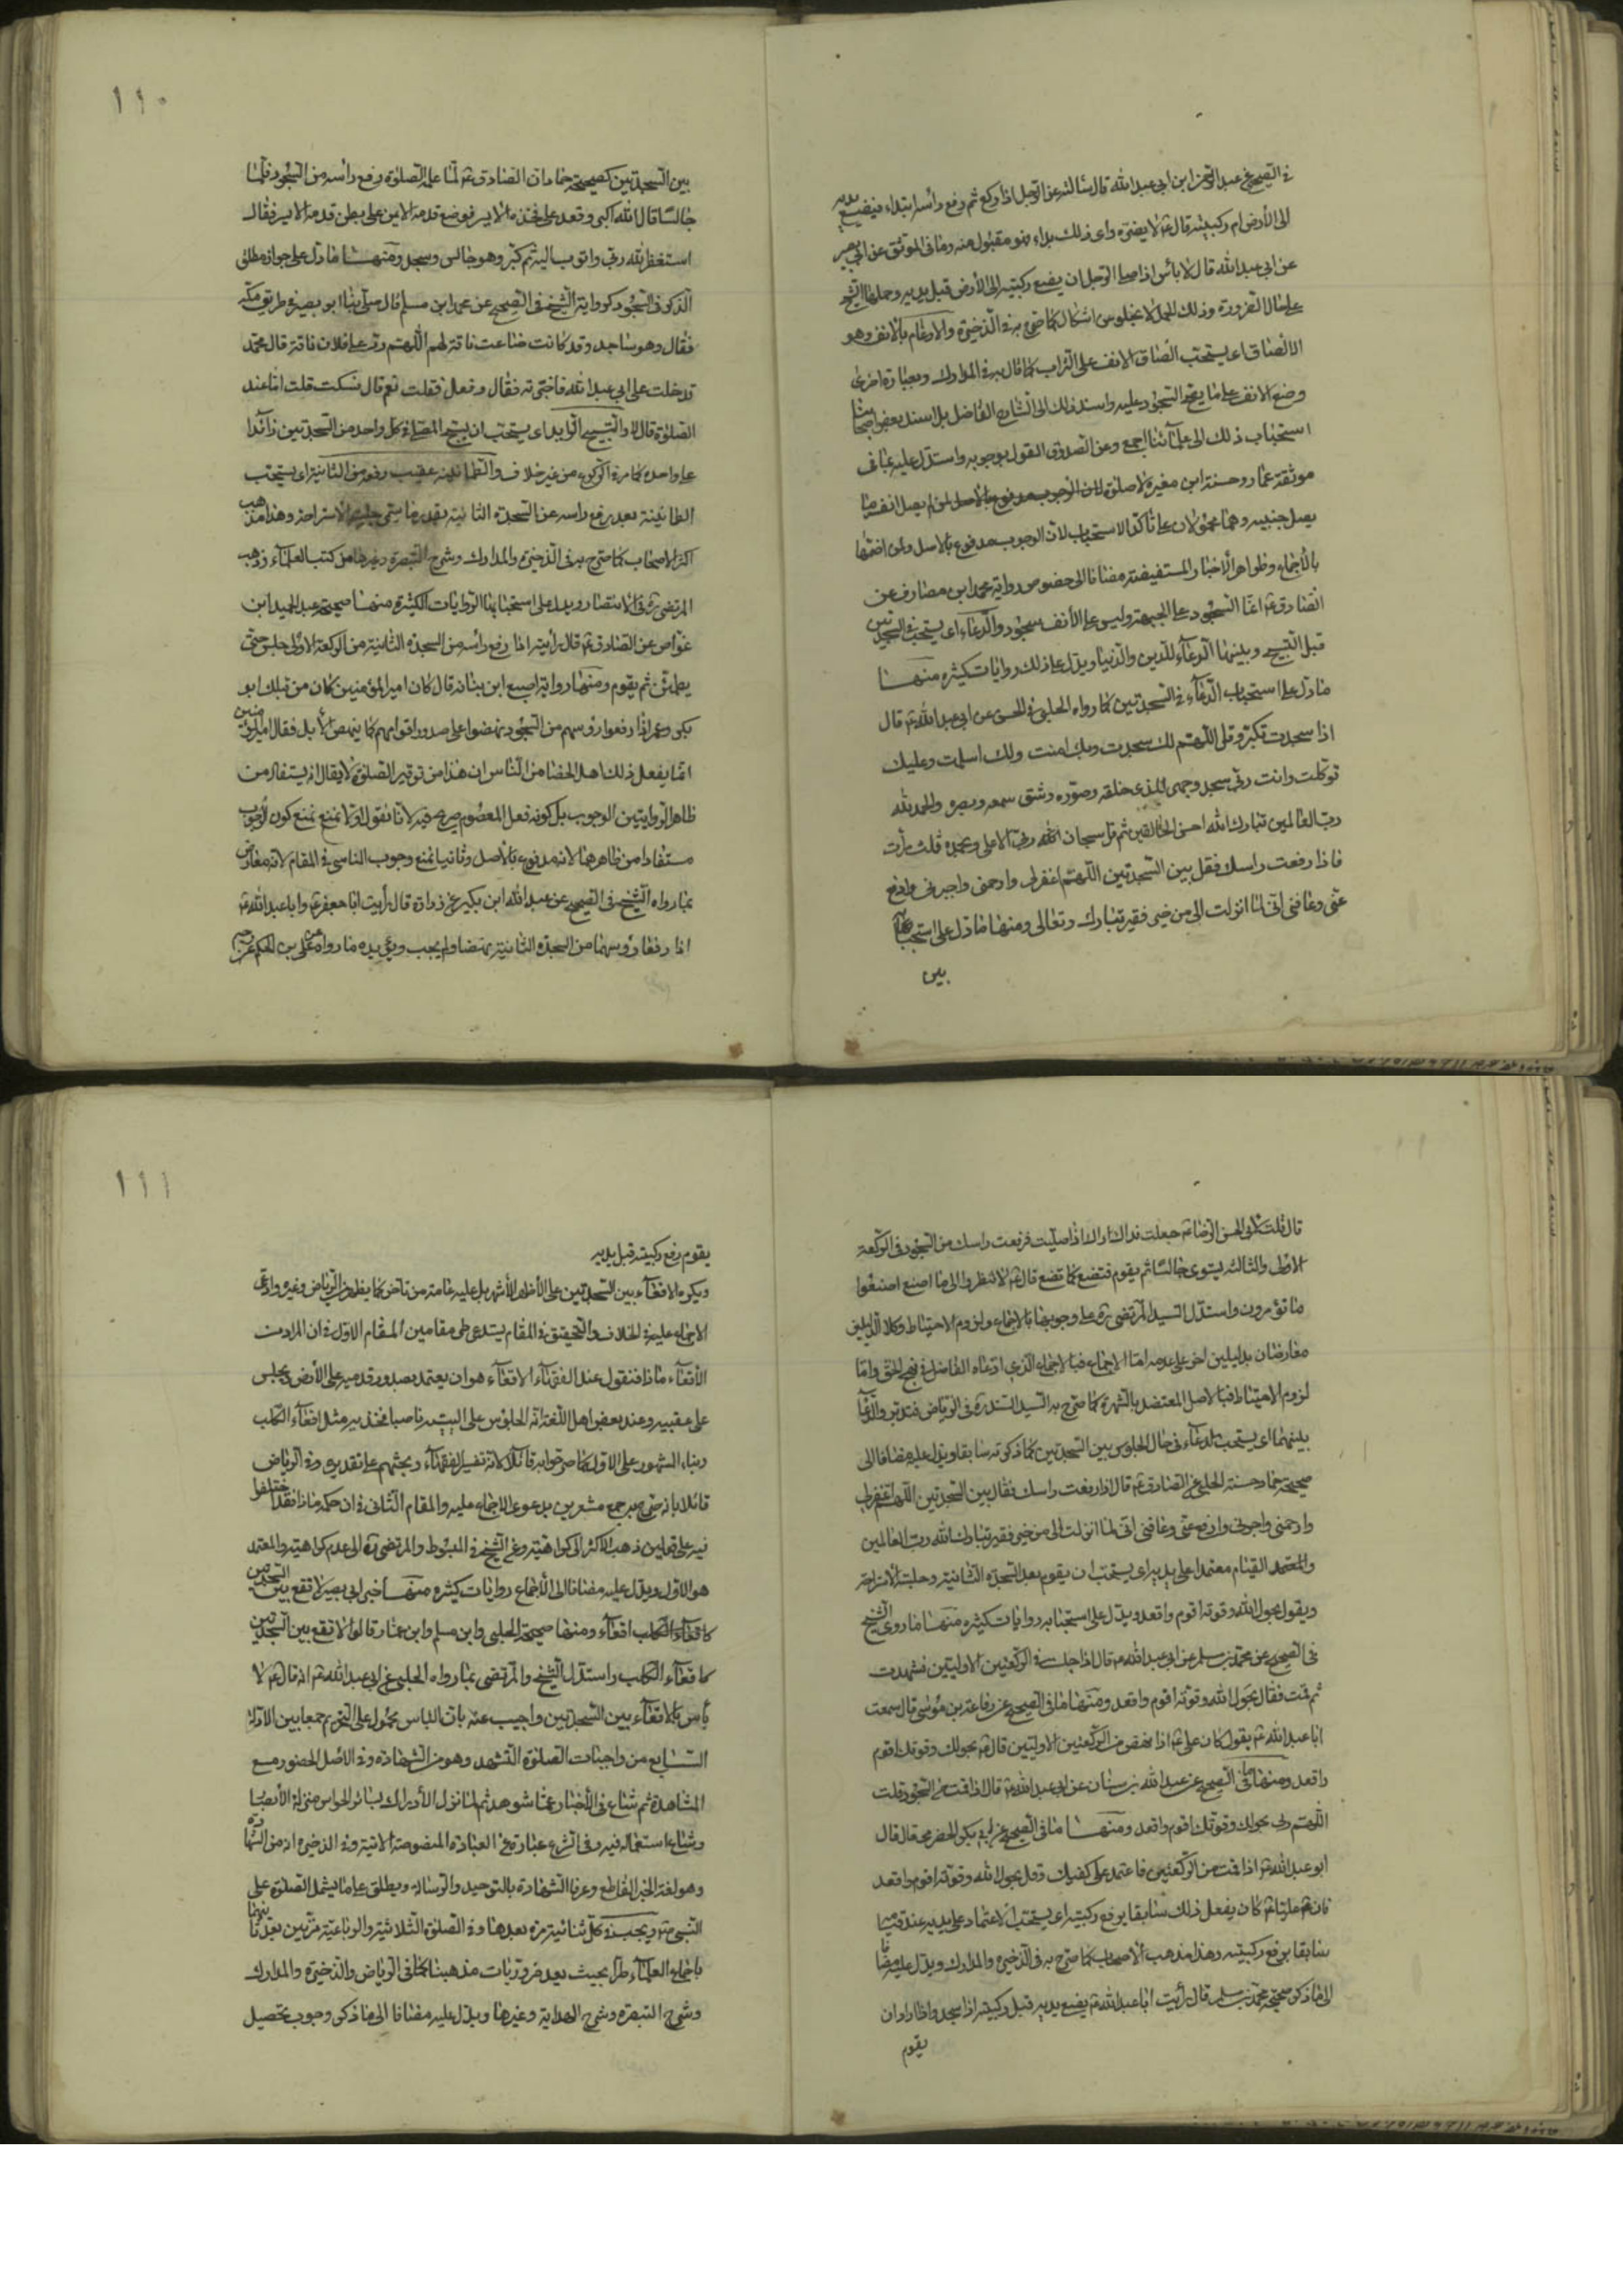 في الصحيح عن عبد الرحمن ابن ابي عبد الله قال سألته عن الرجل اذا ركع ثم رفع رأسه ابتداء فيضع يديه
الى الأرض ام ركبتيه قال ع لا يضره باي ذلك بداء هو مقبول منه وما في الموثق عن ابي بصير
عن ابي عبد الله قال لا بأس اذا صلى الرجل ان يضع ركبتيه الى الأرض قبل يديه وحملها الشيخ
على حال الضرورة وذلك الحمل لا يخلو من اشكال كما صرح به في الذخيرة والارغام بالانف وهو
الالصاق اي يستحب الصاق الانف على التراب كما قال به في المدارك وبعبارة اخرى
وضع الانف على ما يصح السجود عليه واسند ذلك الى الشارح الفاضل بل اسند بعض اصحابنا
استحباب ذلك الى علمائنا اجمع وعن الصدوق القول بوجوبه واستدل عليه بما في
موثقة عمار وحسنة ابن مغيرة لا صلوة لمن لم يصل انفه ما
يصل جبينيه وهما محمولان على تأكد الاستحباب لان الوجوب مدفوع بالاصل
بالاجماع وظواهر الأخبار المستفيضة مضافا الى خصوص رواية محمد ابن مصارف عن
الصادق ع انما السجود على الجبهة وليس على الأنف سجود والدعاء اي يستحب في السجدتين
قبل التسبيح وبينهما الدعاء للدين والدنيا ويدل على ذلك روايات كثيرة منها
ما دل على استحباب الدعاء في السجدتين كما رواه الحلبي في الحسن عن ابي عبد الله ع قال
اذا سجدت فكبر وقل اللهم لك سجدت وبك امنت ولك اسلمت وعليك
توكلت وانت ربي سجد وجهي للذي خلقه وصوره وشق سمعه وبصره والحمد لله
رب العالمين تبارك الله احسن الخالقين ثم قل سبحان الله ربي الاعلى وبحمده ثلث مرات
فاذا رفعت راسك فقل بين السجدتين اللهم اغفر لي وارحمني واجبرني وادفع
عني وعافني اني لما انزلت الي من خير فقير تبارك وتعالى ومنها ما دل على استحبابه
بين
١١٠
بين السجدتين كصحيحة حماد ان الصادق ع لما علمه الصلوة رفع رأسه من السجود فلما
جالسا قال الله اكبر وقعد على فخذه الايسر فوضع قدمه الايمن على بطن قدمه الايسر فقال
استغفر الله ربي واتوب اليه ثم كبر وهو جالس وسجد ومنها ما دل على جواز مطلق
الذكر في السجود كرواية الشيخ في الصحيح عن محمد ابن مسلم قال صلى بنا ابو بصير في طريق مكة
فقال وهو ساجد وقد كانت ضاعت ناقة لهم اللهم رد على فلان ناقته قال محمد
فدخلت على ابي عبد الله فاخبرته فقال وفعل فقلت نعم قال فسكت قلت افاعيد
الصلوة قال لا والتسبيح الزايد اي يستحب ان يسبح المصلي في كل واحد من السجدتين زائدا
على واحدة كما مر في الركوع من غير خلاف والطمأنينة عقيب رفعه من الثانية اي يستحب
الطمأنينة بعد رفع راسه عن السجدة الثانية بقدر ما يسمى جلسة الاستراحة وهذا مذهب
اكثر الاصحاب كما صرح به في الذخيرة والمدارك وشرح التبصرة وغيرها من كتب العلماء وذهب
المرتضى ره في الانتصار ويدل على استحبابها الروايات الكثيرة منها صحيحة عبد الحميد ابن
عواض عن الصادق ع قال رأيته اذا رفع رأسه من السجدة الثانية من الركعة الاولى جلس حتى
يطمئن ثم يقوم ومنها رواية اصبغ ابن نباته قال كان امير المؤمنين كان من قبلك ابو
بكر وعمر اذا رفعوا رؤسهم من السجود نهضوا على صدور اقدامهم كما ينهض الأبل فقال امير المؤمنين
انما يفعل ذلك اهل الجفا من الناس ان هذا من توقير الصلوة لا يقال انه يستفاد من
ظاهر الروايتين الوجوب بل كونه فعل المعصوم صريح فيه لانا نقول اولا نمنع كون الوجوب
مستفادا من ظاهرهما لانه مدفوع بالأصل وثانيا نمنع وجوب التاسي في المقام لانه معارض
بما رواه الشيخ في الصحيح عن عبد الله ابن بكير عن زرارة قال رأيت ابا جعفر ع وابا عبد الله ع
اذا رفعا رؤسهما من السجدة الثانية نهضا ولم يجلسا ويؤيده ما رواه علي بن الحكم عن رحيم
قال قلت لابي الحسن الرضا ع جعلت فداك اراك اذا صليت فرفعت راسك من السجود في الركعة
الاولى والثالثة يستوى جالسا ثم يقوم فنصنع كما تصنع قال ع لا تنظروا الى ما اصنع اصنعوا
ما تؤمرون واستدل السيد المرتضى ره على وجوبها بالاجماع ولزوم الاحتياط وكلا الدليلين
معارضان بدليلين اخر على عدمه اما الاجماع فبالاجماع الذي ادعاه الفاضل في نهج الحق واما
لزوم الاحتياط فبالاصل المعتضد بالشهرة كما صرح به السيد السند ره في الرياض فتدبر والدعاء
بينهما اي يستحب الدعاء في حال الجلوس بين السجدتين كما ذكرته سابقا ويدل عليه مضافا الى
صحيحة حماد حسنة الحلبي عن الصادق ع قال اذا رفعت راسك فقال بين السجدتين اللهم اغفر لي
وارحمني واجرني وادفع عني وعافني اني لما انزلت الي من خير فقير تبارك الله رب العالمين
والمعتمد القيام معتمدا على يديه اي يستحب ان يقوم بعد السجدة الثانية وجلسة الأستراحة
ويقول بحول الله وقوته اقوم واقعد ويدل على استحبابه روايات كثيرة منها ما روى الشيخ
في الصحيح عن محمد بن مسلم عن ابي عبد الله ع قال اذا جلست في الركعتين الاوليتين فتشهدت
ثم قمت فقال بحول الله وقوته اقوم واقعد ومنها ما في الصحيح عن رفاعة بن موسى قال سمعت
ابا عبد الله ع يقول كان علي ع اذا نهض من الركعتين الاوليتين قال ع بحولك وقوتك اقوم
واقعد ومنها ما في الصحيح عن عبد الله بن سنان عن ابي عبد الله ع قال اذا قمت من السجود قلت
اللهم ربي بحولك وقوتك اقوم واقعد ومنها ما في الصحيح عن ابي بكر الحضرمي قال قال
ابو عبد الله ع اذا قمت من الركعتين فاعتمد على كفيك وقل بحول الله وقوته اقوم واقعد
فان عليا ع كان يفعل ذلك سابقا برفع ركبتيه اي يستحب الاعتماد على يديه عند قيامه
سابقا برفع ركبتيه وهذا مذهب الأصحاب كما صرح به في الذخيرة والمدارك ويدل عليه مضافا
الى ما ذكر صحيحة محمد بن مسلم قال رأيت ابا عبد الله ع يضع يديه قبل ركبتيه اذا سجد واذا اراد ان
يقوم
١١١
يقوم رفع ركبتيه قبل يديه
ويكره الاقعاء بين السجدتين على الأظهر الأشهر بل عليه عامة من تأخر كما يظهر من الرياض وغيره وادعى
الاجماع عليه في الخلاف والتحقيق في المقام يستدعي مقامين المقام الاول في ان المراد من
الأقعاء ماذا فنقول عند الفقهاء الاقعاء هو ان يعتمد بصدور قدميه على الأرض ويجلس
على عقبيه وعند بعض اهل اللغة انه الجلوس على اليتيه ناصبا فخذيه مثل اقعاء الكلب
وبناء المشهور على الاول كما صرحوا به قائلا لانه تفسير الفقهاء وبحثهم على تقديره وفي الرياض
قائلا بانه صرح به جمع مشعرين بدعوى الاجماع عليه والمقام الثاني في ان حكمه ماذا فقد اختلفوا
فيه على قولين ذهب الاكثر الى كراهته وعن الشيخ في المبسوط والمرتضى ره الى عدم كراهته والمعتمد
هو الاول ويدل عليه مضافا الى الأجماع روايات كثيرة منها خبر ابي بصير لا تقع بين السجدتين
كاقعاء الكلب اقعاء ومنها صحيحة الحلبي وابن مسلم وابن عمار قالوا لا تقع بين السجدتين
كاقعاء الكلب واستدل الشيخ والمرتضى بما رواه الحلبي عن ابي عبد الله ع انه قال ع لا
بأس بالاقعاء بين السجدتين واجيب عنه بان الباس محمول على التحريم جمعا بين الادلة
السابع من واجبات الصلوة التشهد وهو من الشهادة وفي الاصل الحضور مع
المشاهدة ثم شاع في الأخبار عما شوهد ثم لما نزل الأدراك بسائر الحواس منزلة الأبصار
وشاع استعماله فيه وفي الشرع عبارة عن العبادة المنصوصة الاتية وفي الذخيرة انه من الشهادة
وهو لغة الخبر القاطع وعرفا الشهادة بالتوحيد والرسالة ويطلق على ما يشمل الصلوة على
النبي ص ويجب في كل ثنائية مرة بعدها وفي الصلوة الثلاثية والرباعية مرتين بعدهما
باجماع العلماء طرا بحيث يعد ضروريات مذهبنا كما في الرياض والذخيرة والمدارك
وشرح التبصرة وشرح الهداية وغيرها ويدل عليه مضافا الى ما ذكر وجوب تحصيل